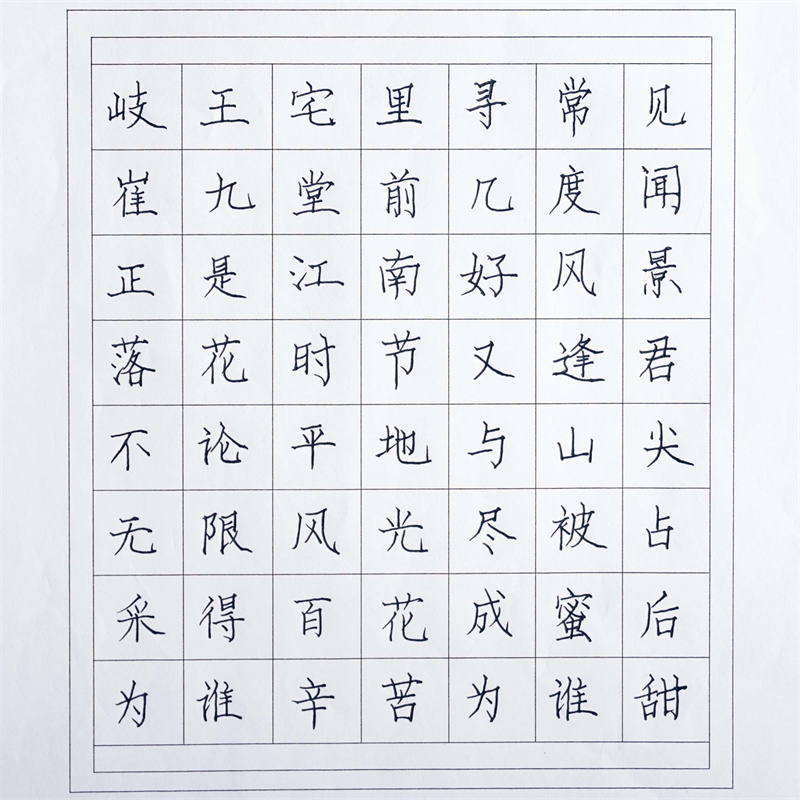 岐王宅里寻常见
崔九堂前几度闻
正是江南好风景
落花时节又逢君
不论平地与山尖
无限风光尽被占
采得百花成蜜后
为谁辛苦为谁甜